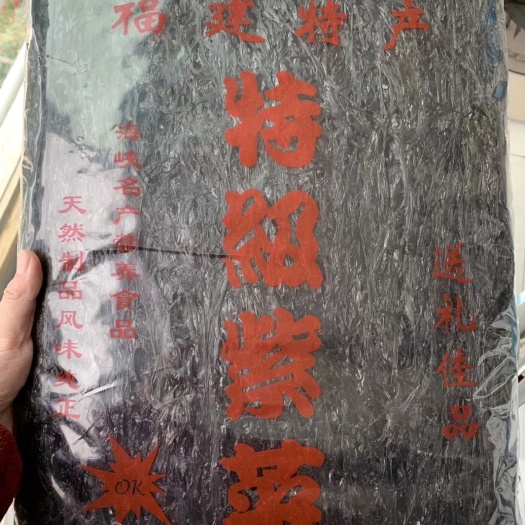 福建特产
特级紫菜
海峡名产营养食品
天然制品风味纯正
送礼佳品
OK